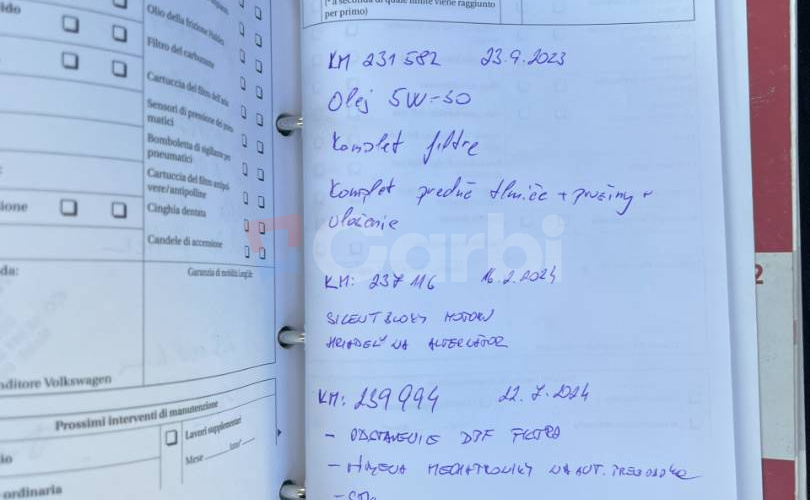 ido
Olio della frizione Haldex
Filtro del carburante
Cartuccia del filtro dell'aria
Sensori di pressione dei pneu-
matici
Bomboletta di sigillante per
pneumatici
Cartuccia del filtro antipol-
vere/antipolline
ione
Cinghia dentata
Candele di accensione
da:
Garanzia di mobilità LongLife
nditore Volkswagen
Prossimi interventi di manutenzione
Lavori supplementari
Mese
io
ordinaria
(* a seconda di quale limite viene raggiunto
per primo)
KM 231 582 23.9.2023
Olej 5W-30
Komplet filtre
Komplet predné tlmiče + pružiny +
uloženie
Garbi
KM: 237 116 16.2.2024
SILENTBLOKY MOTORU
HRIADEĽ NA ALTERNÁTOR
KM: 239994 22.7.2024
- ODSTAVENIE DPF FILTRA
- VÝMENA MECHATRONIKY NA AUT. PREVODOVKE
2